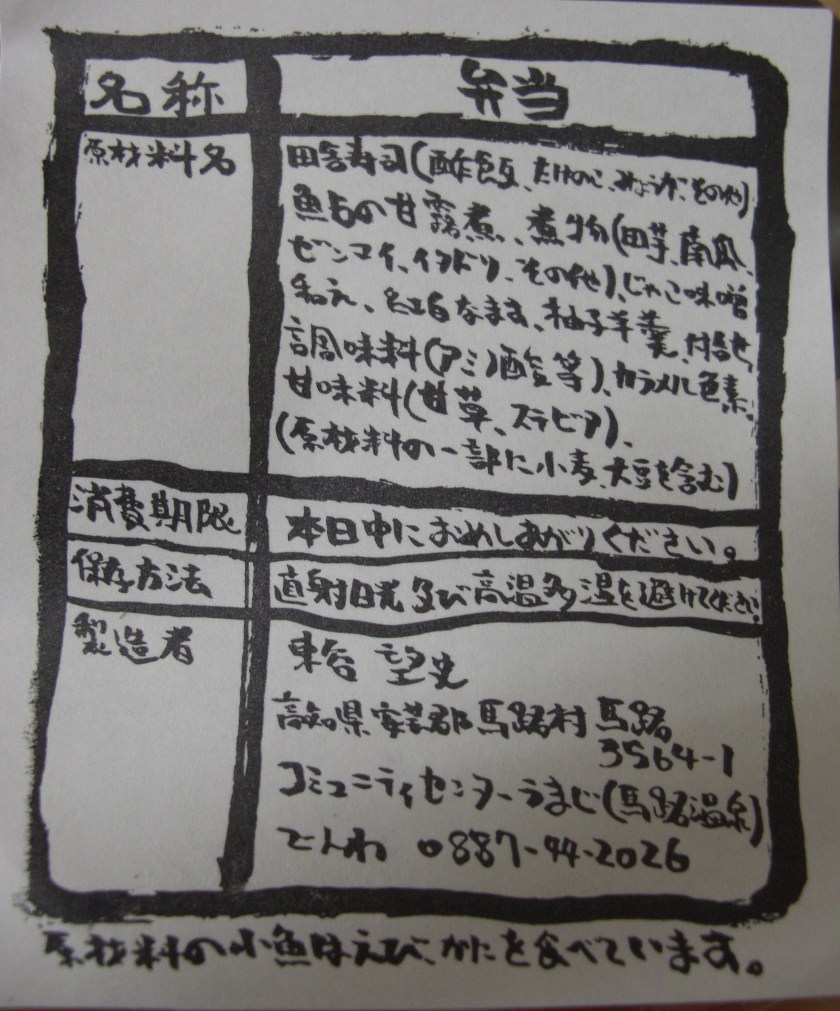 名称 弁当
原材料名 田舎寿司(酢飯、たけのこ、みょうが、その他)
魚占の甘露煮、煮物(田芋、南瓜、
ゼンマイ、イタドリ、その他)、じゃこ味噌
和え、紅白なます、柚子羊羹、付合せ、
調味料(アミノ酸等)、カラメル色素、
甘味料(甘草、ステビア)、
(原材料の一部に小麦、大豆を含む)
消費期限 本日中におめしあがりください。
保存方法 直射日光及び高温多湿を避けて下さい。
製造者 東谷 望史
高知県安芸郡馬路村馬路
3564-1
コミュニティセンターうまじ(馬路温泉)
でんわ 0887-44-2026
原材料の小魚はえび、かにを食べています。